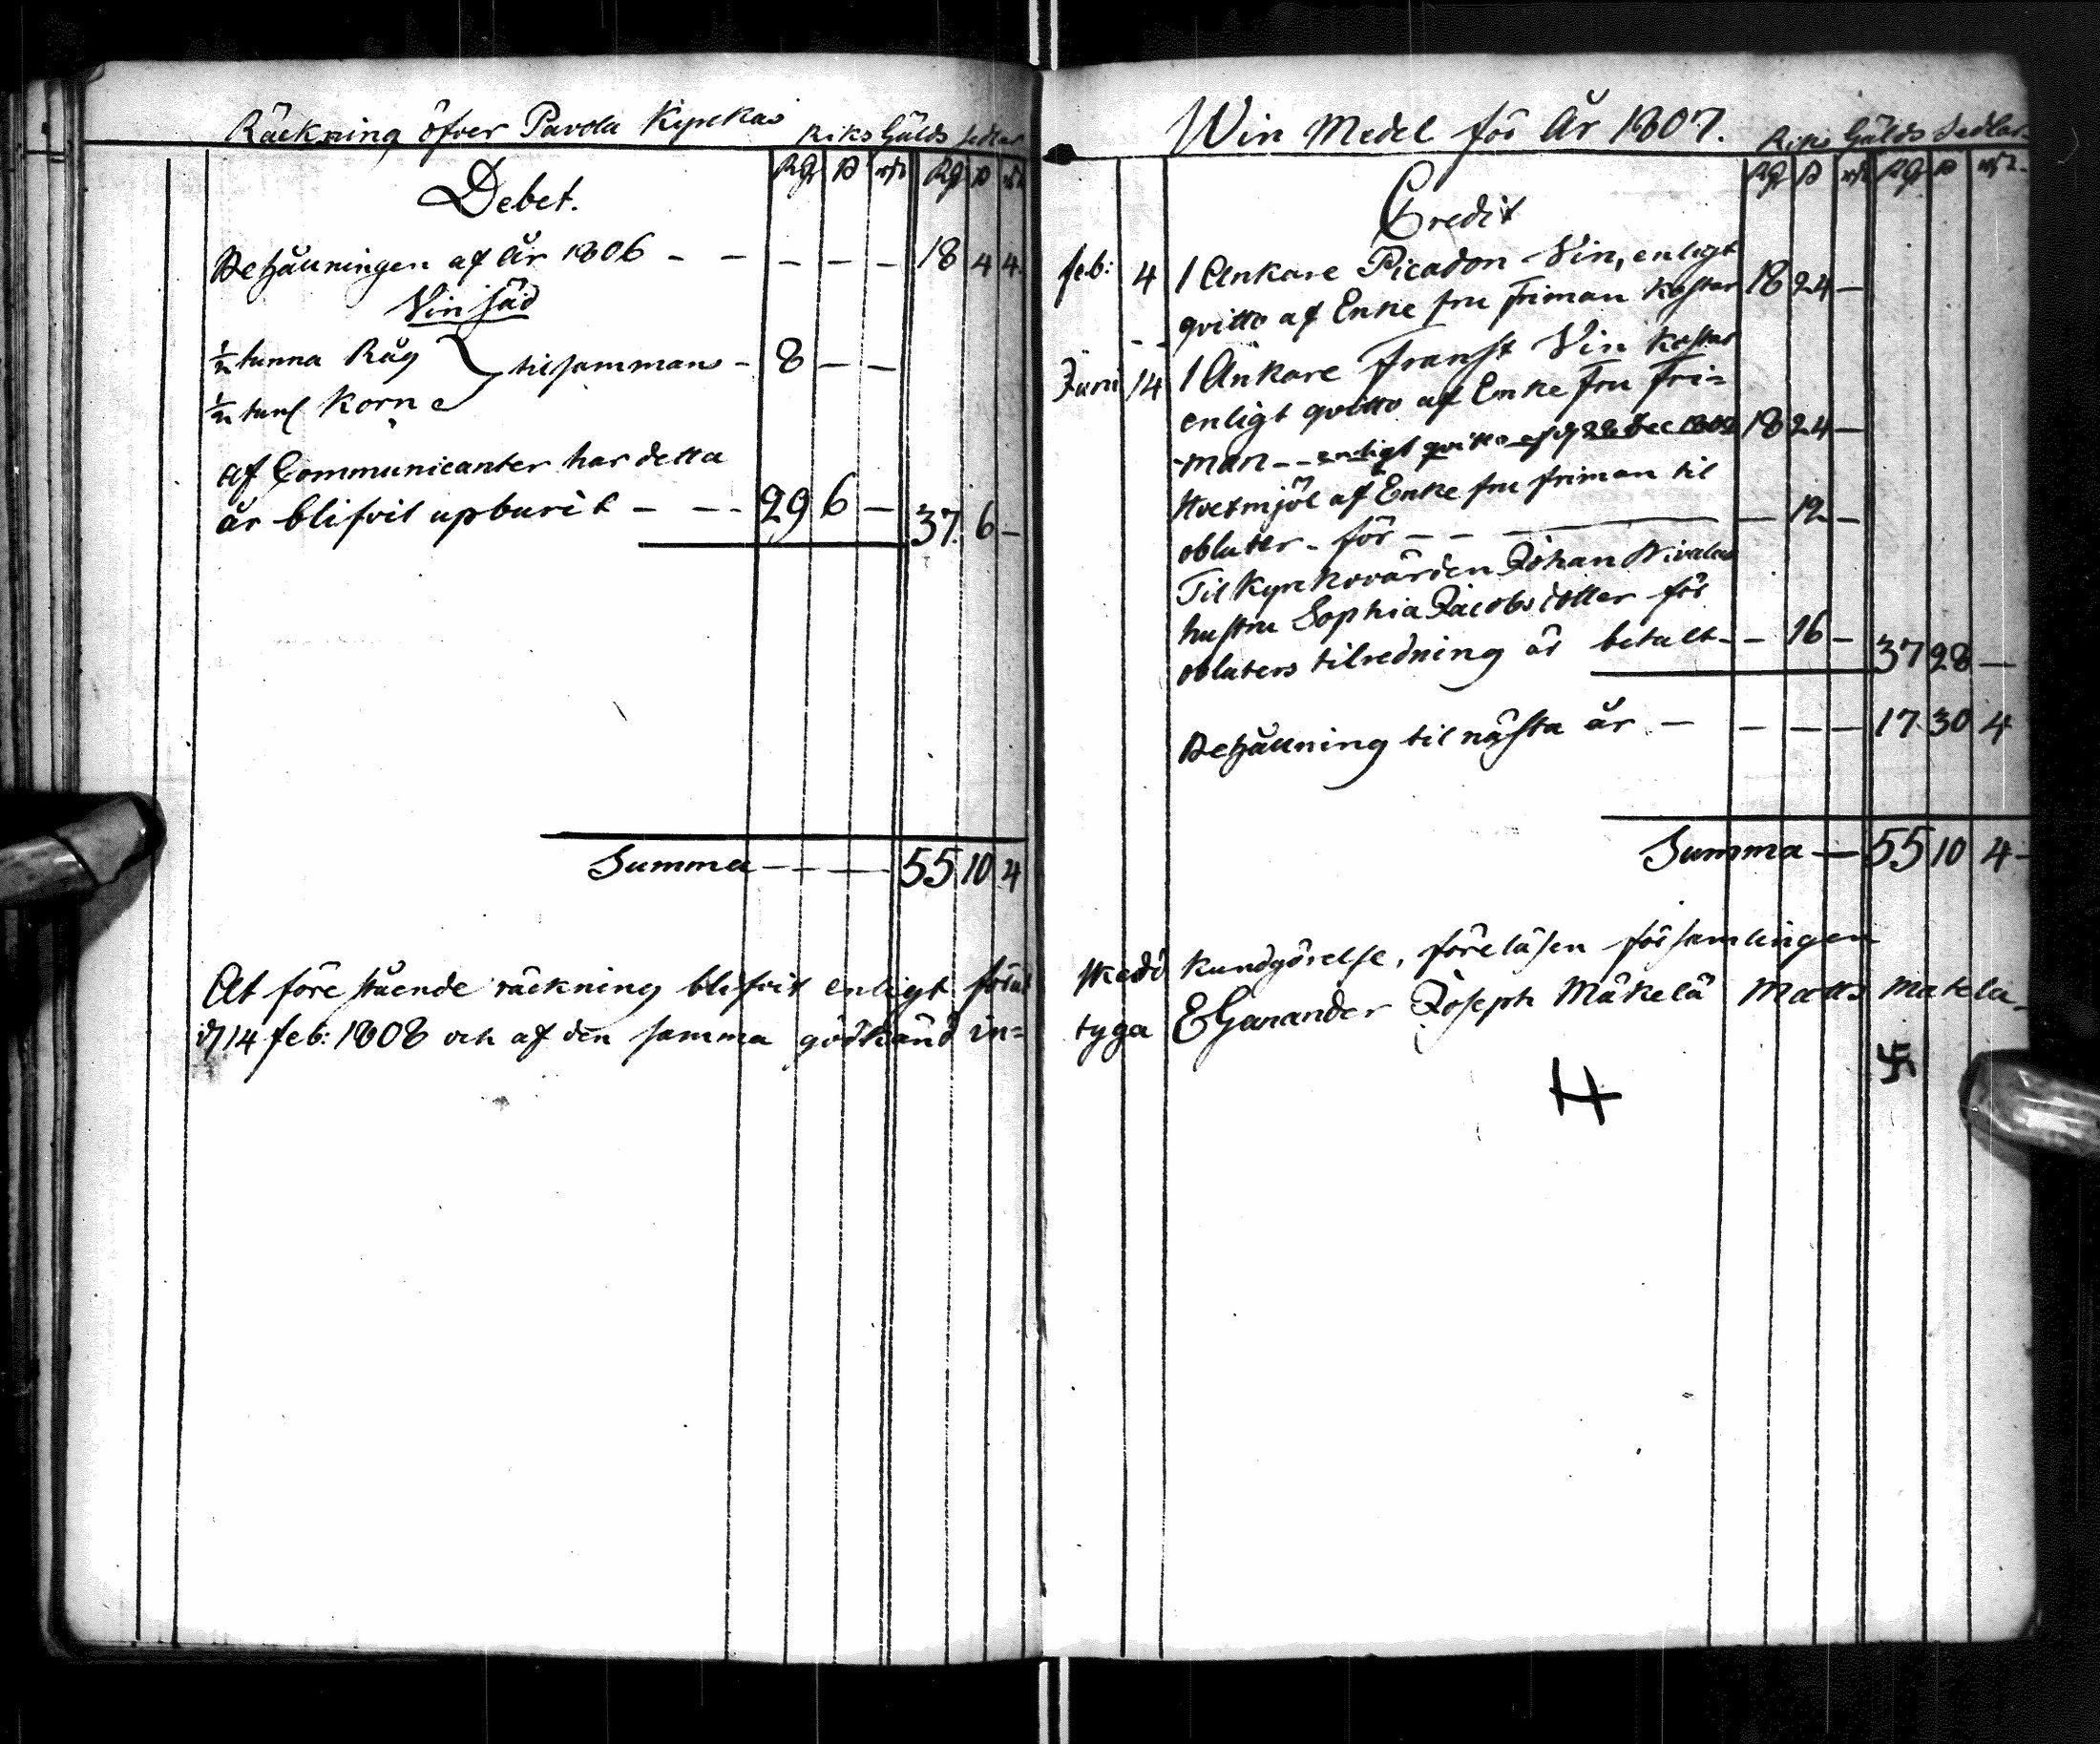 Räckning öfver Pavola Kyrckas Riks Gälds Sedlar
Debet.
Rd ß rst Rd ß rst
Behållningen af År 1806 - - - - - 18 4 4.
Vin säd
½ tunna Råg } tilsammans - 8 - -
½ tun Korn
af Communicanter har detta
år blifvit upburit - - - 29 6 - 37. 6 -
Summa - - - - 55 10 4
At före stående räckning blifvit enligt förut
d 14 feb: 1808 och af den samma godkänd in=
Win Medel för År 1807. Riks Gälds Sedlar
Credit
Rd ß rst Rd ß rst
feb: 4 1 Ankare Picadon Vin, enligt
qvitto af Enke fru Friman kostar 18 24 -
Juni 14 1 Ankare Franst Vin kostar
enligt qvitto af Enke Fru Fri=
man - - enligt qvitto af d 22 Dec 1807 18 24 -
Hvetmjöl af Enke fru friman til
oblater - för - - - - 12 -
Til Kyrkovärden Johan Nivalas
hustru Sophia Jacobsdotter för
oblaters tilredning är betalt - - 16 - 37 28 -
Behållning til nästa år - - - - 17 30 4
Summa - 55 10 4 -
skedd kundgörelse, föreläsen församlingen
tyga EGanander Joseph Mäkelä Matts Matela